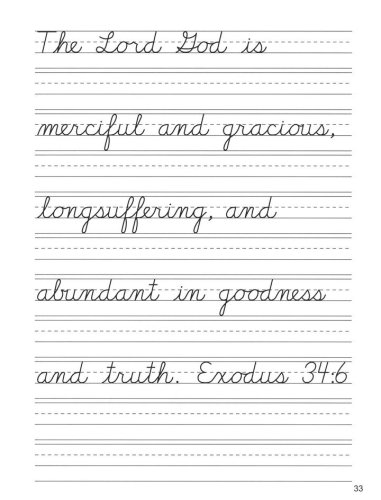 The Lord God is
merciful and gracious,
longsuffering, and
abundant in goodness
and truth. Exodus 34:6
33